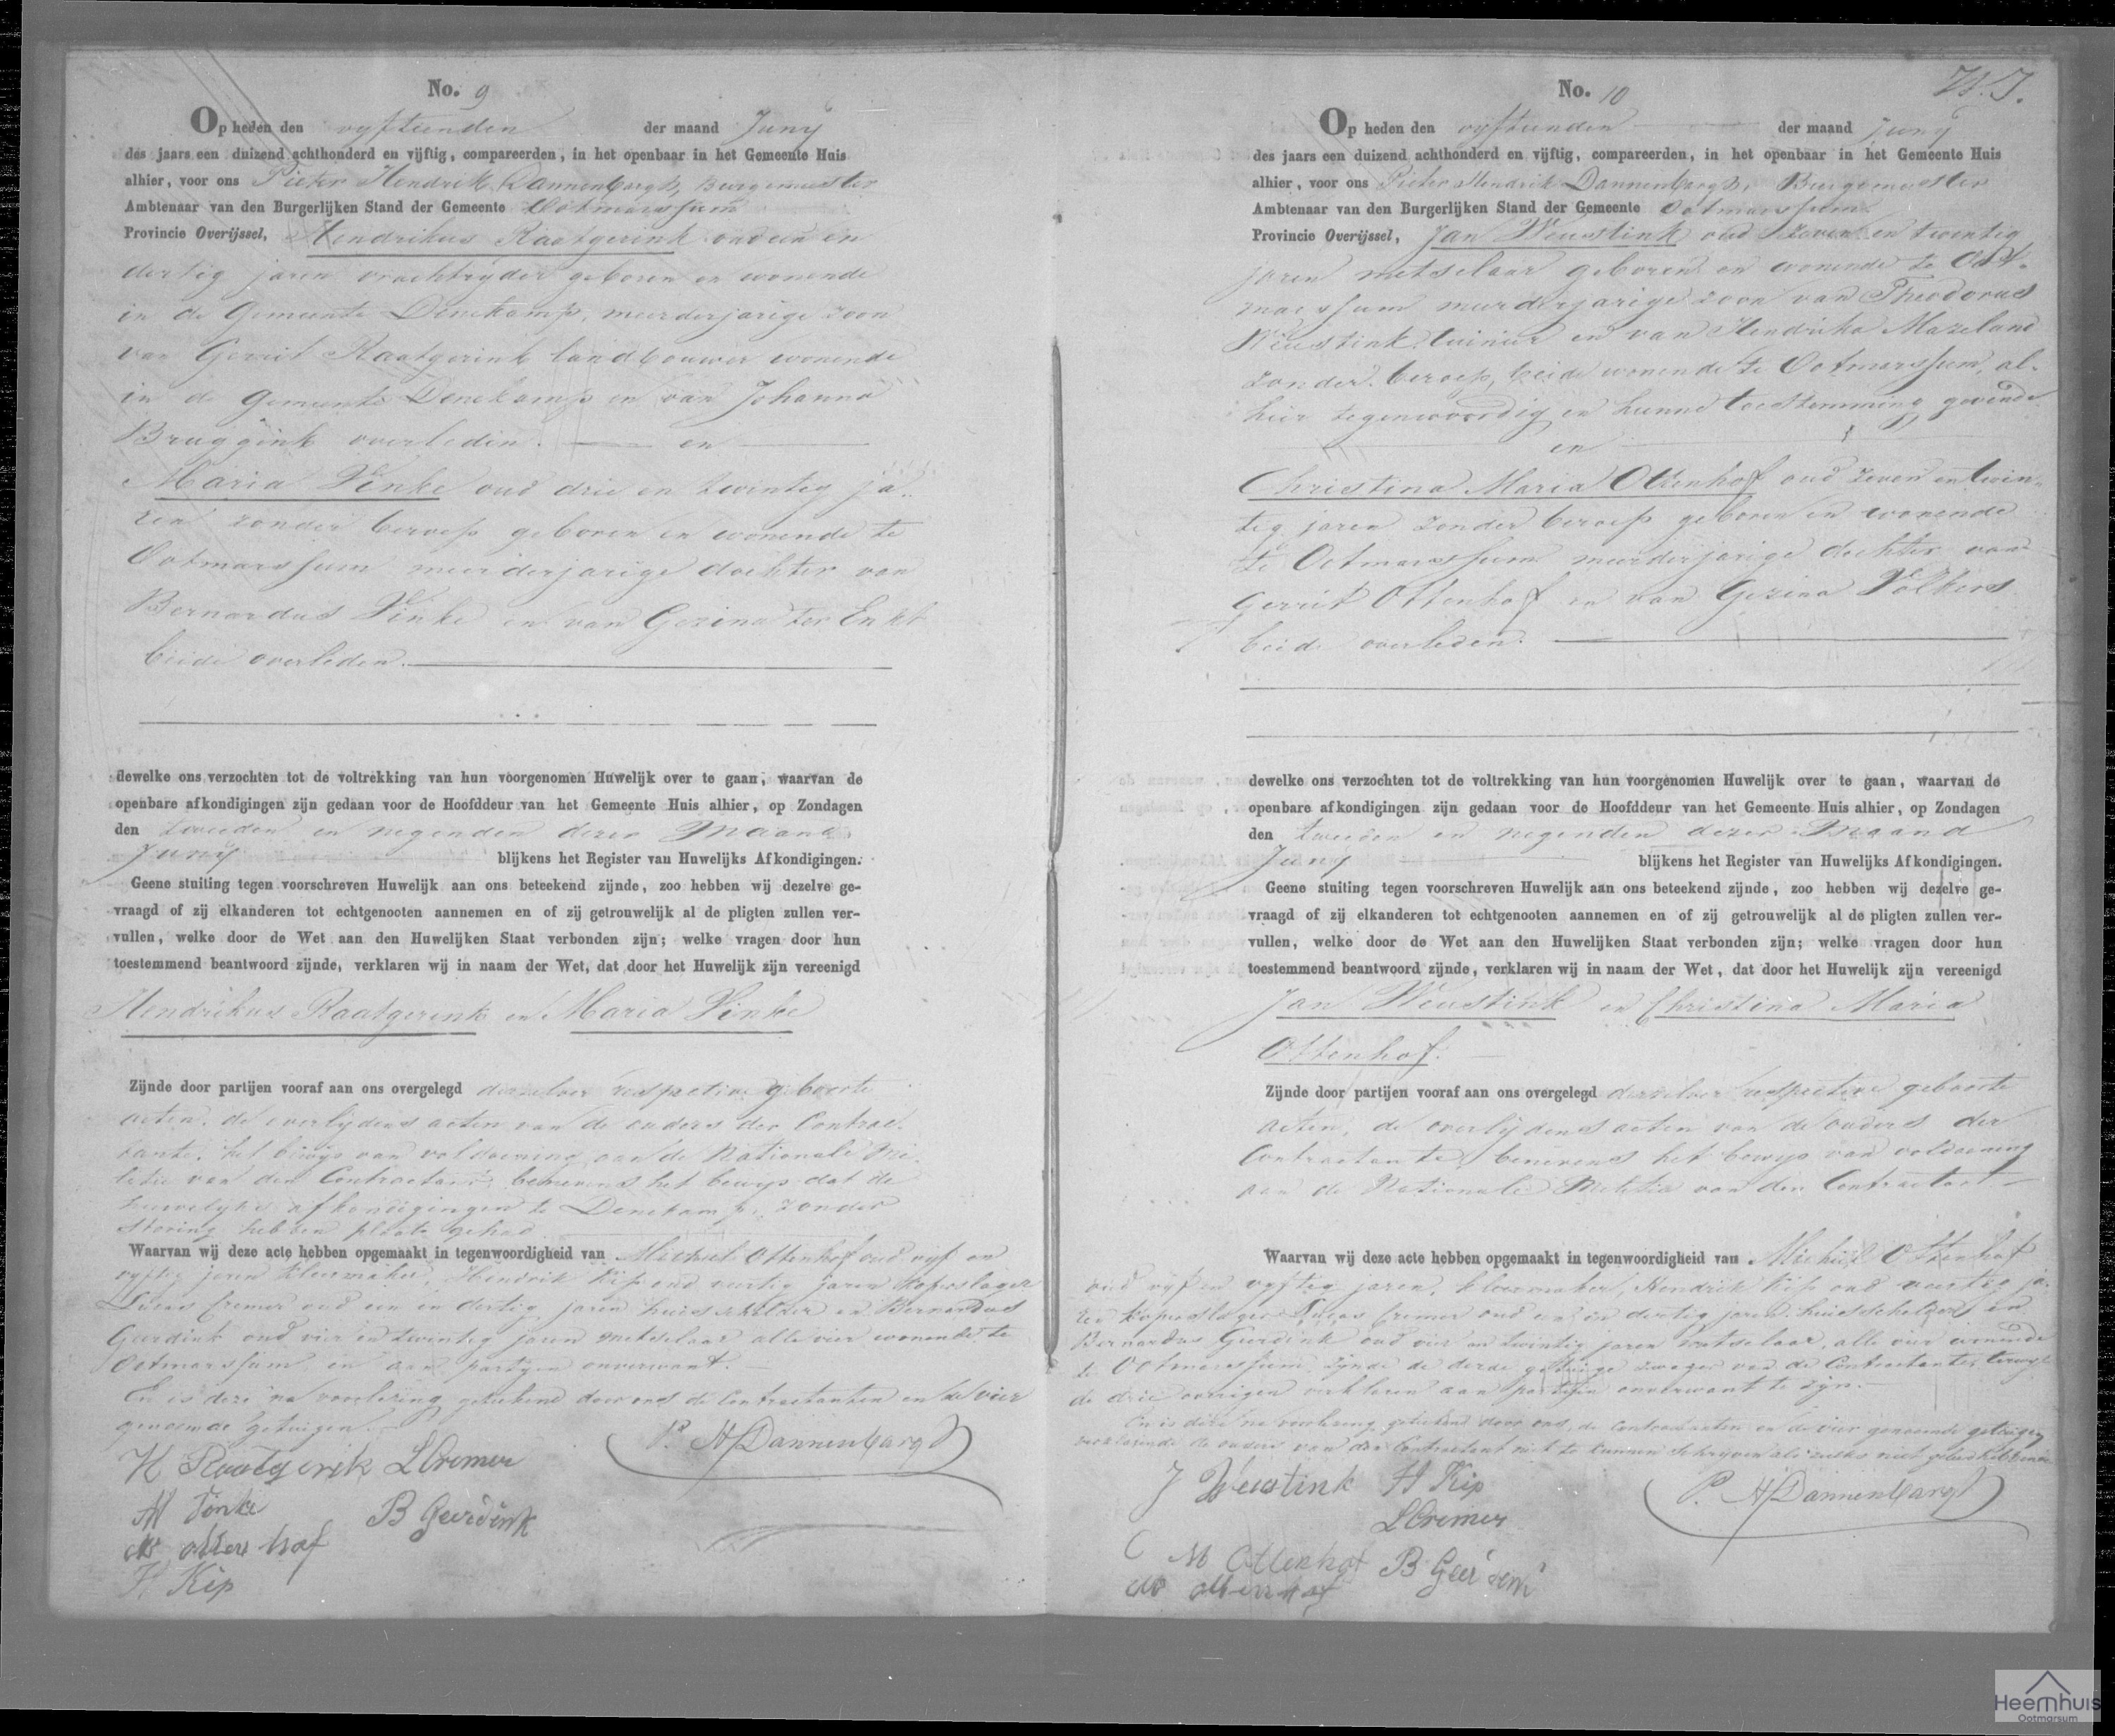 No. 9
Op heden den vyftienden der maand Juny
des jaars een duizend achthonderd en vijftig, compareerden, in het openbaar in het Gemeente Huis
alhier, voor ons Pieter Hendrik Dannenbargh, Burgemeester
Ambtenaar van den Burgerlijken Stand der Gemeente Ootmarssum
Provincie Overijssel, Hendrikus Raatgerink oud een en
dertig jaren vrachtryder geboren en wonende
in de Gemeente Denekamp, meerderjarige zoon
van Gerrit Raatgerink landbouwer wonende
in de Gemeente Denekamp en van Johanna
Bruggink overleden. en
Maria Finke oud drie en twintig ja-
ren zonder beroep geboren en wonende te
Ootmarssum meerderjarige dochter van
Bernardus Finke en van Gezina ter Enkt
beide overleden.
dewelke ons verzochten tot de voltrekking van hun voorgenomen Huwelijk over te gaan, waarvan de
openbare afkondigingen zijn gedaan voor de Hoofddeur van het Gemeente Huis alhier, op Zondagen
den tweeden en negenden dezer maand
Juny blijkens het Register van Huwelijks Afkondigingen.
Geene stuiting tegen voorschreven Huwelijk aan ons beteekend zijnde, zoo hebben wij dezelve ge-
vraagd of zij elkanderen tot echtgenooten aannemen en of zij getrouwelijk al de pligten zullen ver-
vullen, welke door de Wet aan den Huwelijken Staat verbonden zijn; welke vragen door hun
toestemmend beantwoord zijnde, verklaren wij in naam der Wet, dat door het Huwelijk zijn vereenigd
Hendrikus Raatgerink en Maria Finke
Zijnde door partijen vooraf aan ons overgelegd derzelver respective geboorte
acten, de overlydens acten van de ouders der Contrac-
tante, het bewys van voldoening aan de Nationale Mi-
litie van den Contractant benevens het bewys dat de
huwelyks afkondigingen te Denekamp, zonder
storing hebben plaats gehad
Waarvan wij deze acte hebben opgemaakt in tegenwoordigheid van Michiel Ottenhof oud vyf en
vyftig jaren kleermaker, Hendrik Kip oud veertig jaren Koperslager
Lucas Cremer oud een en dertig jaren huisschilder en Bernardus
Geerdink oud vier en twintig jaren metselaar alle vier wonende te
Ootmarssum en aan partyen onverwant.
En is deze na voorlezing getekend door ons de Contractanten en de vier
genoemde getuigen.
P. H. Dannenbargh
H Raatgerink LCremer
M Finke B Geerdink
M ottenhof
H Kip
W.J.
No. 10
Op heden den vyftienden der maand Juny
des jaars een duizend achthonderd en vijftig, compareerden, in het openbaar in het Gemeente Huis
alhier, voor ons Pieter Hendrik Dannenbargh, Burgemeester
Ambtenaar van den Burgerlijken Stand der Gemeente Ootmarssum
Provincie Overijssel, Jan Weustink oud zeven en twintig
jaren metselaar geboren en wonende te Oot-
marssum meerderjarige zoon van Theodorus
Weustink tuinier en van Hendrika Mazeland
zonder beroep, beide wonende te Ootmarssum, al-
hier tegenwoordig en hunne toestemming gevende
en
Christina Maria Ottenhof oud zeven en twin-
tig jaren zonder beroep geboren en wonende
te Ootmarssum meerderjarige dochter van
Gerrit Ottenhof en van Gezina Volkers
beide overleden.
dewelke ons verzochten tot de voltrekking van hun voorgenomen Huwelijk over te gaan, waarvan de
openbare afkondigingen zijn gedaan voor de Hoofddeur van het Gemeente Huis alhier, op Zondagen
den tweeden en negenden dezer maand
Juny blijkens het Register van Huwelijks Afkondigingen.
Geene stuiting tegen voorschreven Huwelijk aan ons beteekend zijnde, zoo hebben wij dezelve ge-
vraagd of zij elkanderen tot echtgenooten aannemen en of zij getrouwelijk al de pligten zullen ver-
vullen, welke door de Wet aan den Huwelijken Staat verbonden zijn; welke vragen door hun
toestemmend beantwoord zijnde, verklaren wij in naam der Wet, dat door het Huwelijk zijn vereenigd
Jan Weustink en Christina Maria
Ottenhof.
Zijnde door partijen vooraf aan ons overgelegd derzelver respective geboorte
acten, de overlydens acten van de ouders der
Contractante, benevens het bewys van voldoening
aan de Nationale Militie van den Contractant
Waarvan wij deze acte hebben opgemaakt in tegenwoordigheid van Michiel Ottenhof
oud vyf en vyftig jaren, kleermaker, Hendrik Kip oud veertig ja-
ren koperslager Lucas Cremer oud een en dertig jaren huisschilder en
Bernardus Geerdink oud vier en twintig jaren metselaar, alle vier wonende
te Ootmarssum, zynde de derde getuige zwager van de Contractante, terwyl
de drie overigen verklaren aan partyen onverwant te zyn.
En is deze na voorlezing getekend door ons, de Contractanten en de vier genoemde getuigen
verklarende de ouders van den Contractant niet te kunnen schryven als zulks niet geleerd hebbende
P. H. Dannenbargh
J Weustink H Kip
LCremer
C M Ottenhof B Geerdink
M ottenhof
Heemhuis
Ootmarsum